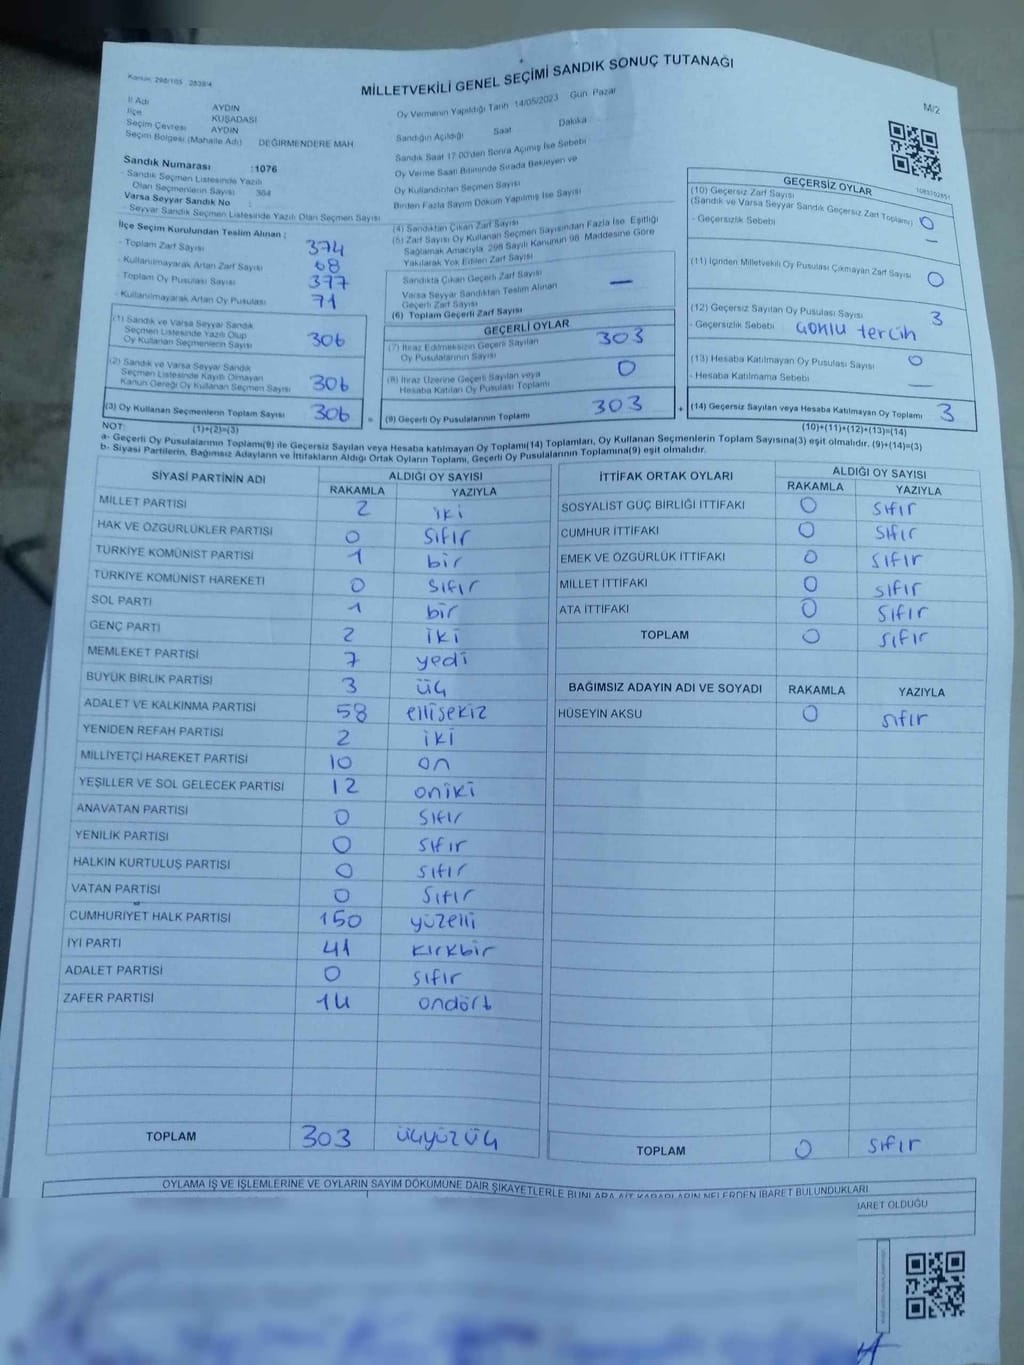 Kanun: 298/105 2839/4
MİLLETVEKİLİ GENEL SEÇİMİ SANDIK SONUÇ TUTANAĞI
M/2
İl Adı AYDIN
İlçe KUŞADASI
Seçim Çevresi AYDIN
Seçim Bölgesi (Mahalle Adı) DEĞİRMENDERE MAH
Sandık Numarası :1076
- Sandık Seçmen Listesinde Yazılı
Olan Seçmenlerin Sayısı : 364
Varsa Seyyar Sandık No :
- Seyyar Sandık Seçmen Listesinde Yazılı Olan Seçmen Sayısı
Oy Vermenin Yapıldığı Tarih 14/05/2023 Gün Pazar
Sandığın Açıldığı Saat Dakika
Sandık Saat 17:00'den Sonra Açılmış İse Sebebi
Oy Verme Saati Bitiminde Sırada Bekleyen ve
Oy Kullandırılan Seçmen Sayısı
Birden Fazla Sayım Döküm Yapılmış İse Sayısı
İlçe Seçim Kurulundan Teslim Alınan ;
- Toplam Zarf Sayısı 374
- Kullanılmayarak Artan Zarf Sayısı 68
- Toplam Oy Pusulası Sayısı 377
- Kullanılmayarak Artan Oy Pusulası 71
(1) Sandık ve Varsa Seyyar Sandık
Seçmen Listesinde Yazılı Olup
Oy Kullanan Seçmenlerin Sayısı 306
(2) Sandık ve Varsa Seyyar Sandık
Seçmen Listesinde Kayıtlı Olmayan
Kanun Gereği Oy Kullanan Seçmen Sayısı 306
(3) Oy Kullanan Seçmenlerin Toplam Sayısı 306 =
(1)+(2)=(3)
(4) Sandıktan Çıkan Zarf Sayısı
(5) Zarf Sayısı Oy Kullanan Seçmen Sayısından Fazla İse, Eşitliği
Sağlamak Amacıyla 298 Sayılı Kanunun 98. Maddesine Göre
Yakılarak Yok Edilen Zarf Sayısı
Sandıkta Çıkan Geçerli Zarf Sayısı —
Varsa Seyyar Sandıktan Teslim Alınan
Geçerli Zarf Sayısı
(6) Toplam Geçerli Zarf Sayısı
GEÇERLİ OYLAR
(7) İtiraz Edilmeksizin Geçerli Sayılan
Oy Pusulalarının Sayısı 303
(8) İtiraz Üzerine Geçerli Sayılan veya
Hesaba Katılan Oy Pusulası Toplamı 0
(9) Geçerli Oy Pusulalarının Toplamı 303 +
GEÇERSİZ OYLAR
(10) Geçersiz Zarf Sayısı
(Sandık ve Varsa Seyyar Sandık Geçersiz Zarf Toplamı) 0
- Geçersizlik Sebebi —
(11) İçinden Milletvekili Oy Pusulası Çıkmayan Zarf Sayısı 0
(12) Geçersiz Sayılan Oy Pusulası Sayısı 3
- Geçersizlik Sebebi çoklu tercih
(13) Hesaba Katılmayan Oy Pusulası Sayısı 0
- Hesaba Katılmama Sebebi —
(14) Geçersiz Sayılan veya Hesaba Katılmayan Oy Toplamı 3
(10)+(11)+(12)+(13)=(14)
NOT:
a- Geçerli Oy Pusulalarının Toplamı(9) ile Geçersiz Sayılan veya Hesaba katılmayan Oy Toplamı(14) Toplamları, Oy Kullanan Seçmenlerin Toplam Sayısına(3) eşit olmalıdır. (9)+(14)=(3)
b- Siyasi Partilerin, Bağımsız Adayların ve İttifakların Aldığı Ortak Oyların Toplamı, Geçerli Oy Pusulalarının Toplamına(9) eşit olmalıdır.
SİYASİ PARTİNİN ADI ALDIĞI OY SAYISI
RAKAMLA YAZIYLA
MİLLET PARTİSİ 2 iki
HAK VE ÖZGÜRLÜKLER PARTİSİ 0 sıfır
TÜRKİYE KOMÜNİST PARTİSİ 1 bir
TÜRKİYE KOMÜNİST HAREKETİ 0 sıfır
SOL PARTİ 1 bir
GENÇ PARTİ 2 iki
MEMLEKET PARTİSİ 7 yedi
BÜYÜK BİRLİK PARTİSİ 3 üç
ADALET VE KALKINMA PARTİSİ 58 ellisekiz
YENİDEN REFAH PARTİSİ 2 iki
MİLLİYETÇİ HAREKET PARTİSİ 10 on
YEŞİLLER VE SOL GELECEK PARTİSİ 12 oniki
ANAVATAN PARTİSİ 0 sıfır
YENİLİK PARTİSİ 0 sıfır
HALKIN KURTULUŞ PARTİSİ 0 sıfır
VATAN PARTİSİ 0 sıfır
CUMHURİYET HALK PARTİSİ 150 yüzelli
İYİ PARTİ 41 kırkbir
ADALET PARTİSİ 0 sıfır
ZAFER PARTİSİ 14 ondört
TOPLAM 303 üçyüzüç
İTTİFAK ORTAK OYLARI ALDIĞI OY SAYISI
RAKAMLA YAZIYLA
SOSYALİST GÜÇ BİRLİĞİ İTTİFAKI 0 sıfır
CUMHUR İTTİFAKI 0 sıfır
EMEK VE ÖZGÜRLÜK İTTİFAKI 0 sıfır
MİLLET İTTİFAKI 0 sıfır
ATA İTTİFAKI 0 sıfır
TOPLAM 0 sıfır
BAĞIMSIZ ADAYIN ADI VE SOYADI RAKAMLA YAZIYLA
HÜSEYİN AKSU 0 sıfır
TOPLAM 0 sıfır
OYLAMA İŞ VE İŞLEMLERİNE VE OYLARIN SAYIM DÖKÜMÜNE DAİR ŞİKAYETLERLE BUNLARA AİT KARARLARIN NELERDEN İBARET BULUNDUKLARI
İBARET OLDUĞU